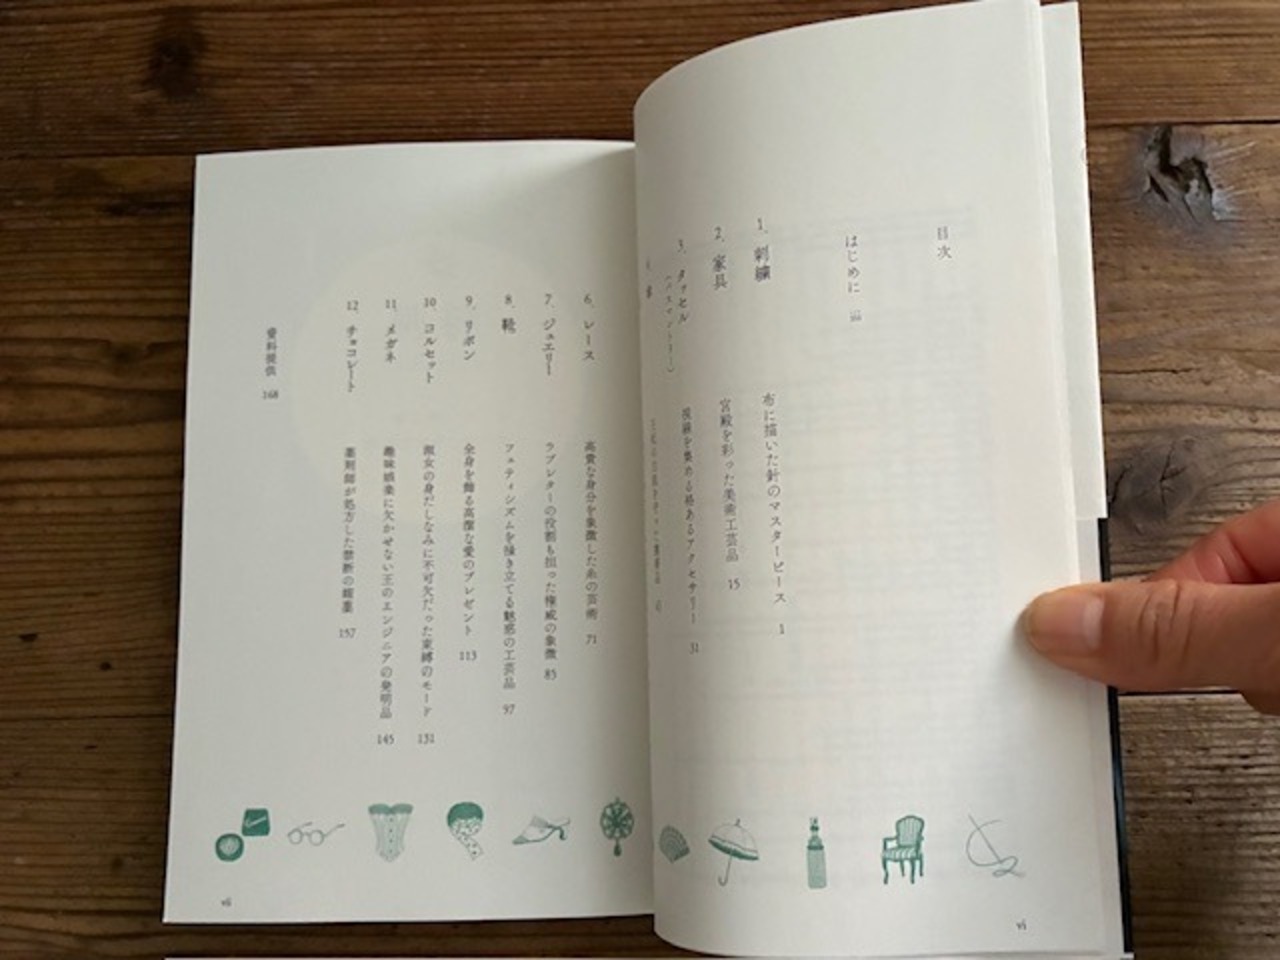 目次
はじめに iii
1. 刺繍 布に描いた針のマスターピース 1
2. 家具 宮殿を彩った美術工芸品 15
3. タッセル(パスマントリー) 視線を集める格あるアクセサリー 31
6. レース 高貴な身分を象徴した糸の芸術 71
7. ジュエリー ラブレターの役割も担った権威の象徴 85
8. 靴 フェティシズムを掻き立てる魅惑の工芸品 97
9. リボン 全身を飾る高潔な愛のプレゼント 113
10. コルセット 淑女の身だしなみに不可欠だった束縛のモード 131
11. メガネ 趣味娯楽に欠かせない王のエンジニアの発明品 145
12. チョコレート 薬剤師が処方した禁断の媚薬 157
資料提供 168
vi
vii